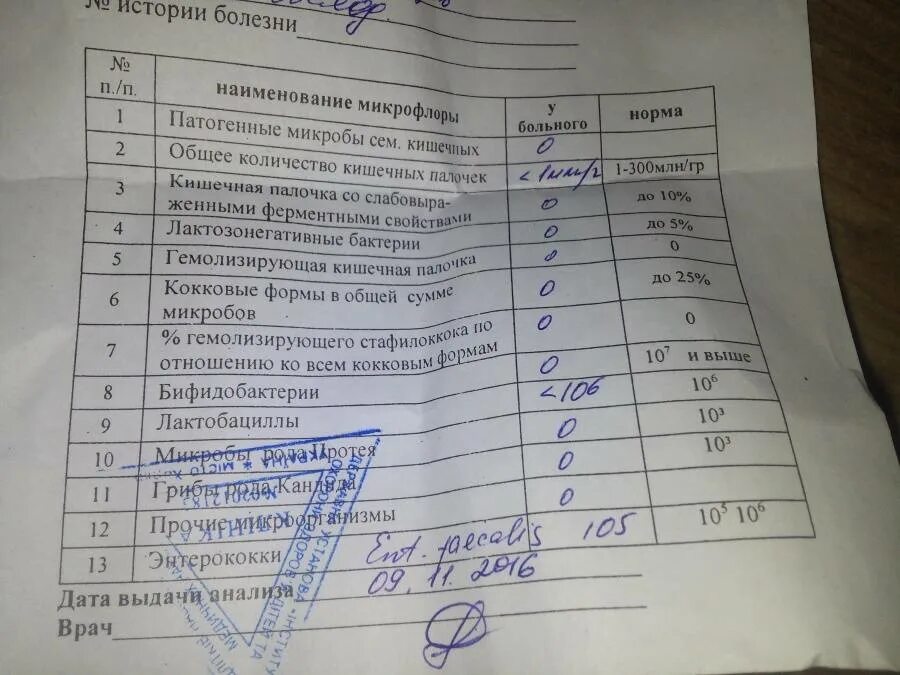 № истории болезни
№ п./п. наименование микрофлоры у больного норма
1 Патогенные микробы сем. кишечных 0
2 Общее количество кишечных палочек <1млн/г 1-300млн/гр
3 Кишечная палочка со слабовыра-
женными ферментными свойствами 0 до 10%
4 Лактозонегативные бактерии 0 до 5%
5 Гемолизирующая кишечная палочка 0 0
6 Кокковые формы в общей сумме
микробов 0 до 25%
7 % гемолизирующего стафилоккока по 0 0
отношению ко всем кокковым формам
8 Бифидобактерии 0 10⁷ и выше
9 Лактобациллы <106 10⁶
10 Микробы рода Протея 0 10³
11 Грибы рода Кандида 0 10³
12 Прочие микроорганизмы 0
13 Энтерококки Ent. faecalis 105 10⁵ 10⁶
Дата выдачи анализа 09.11.2016
Врач
УКРАЇНА * МІСТО
ДЕРЖАВНА УСТАНОВА «ІНСТИТУ
ОХОРОНИ ЗДОРОВ'Я ДІТЕЙ ТА
КЛІНІКА